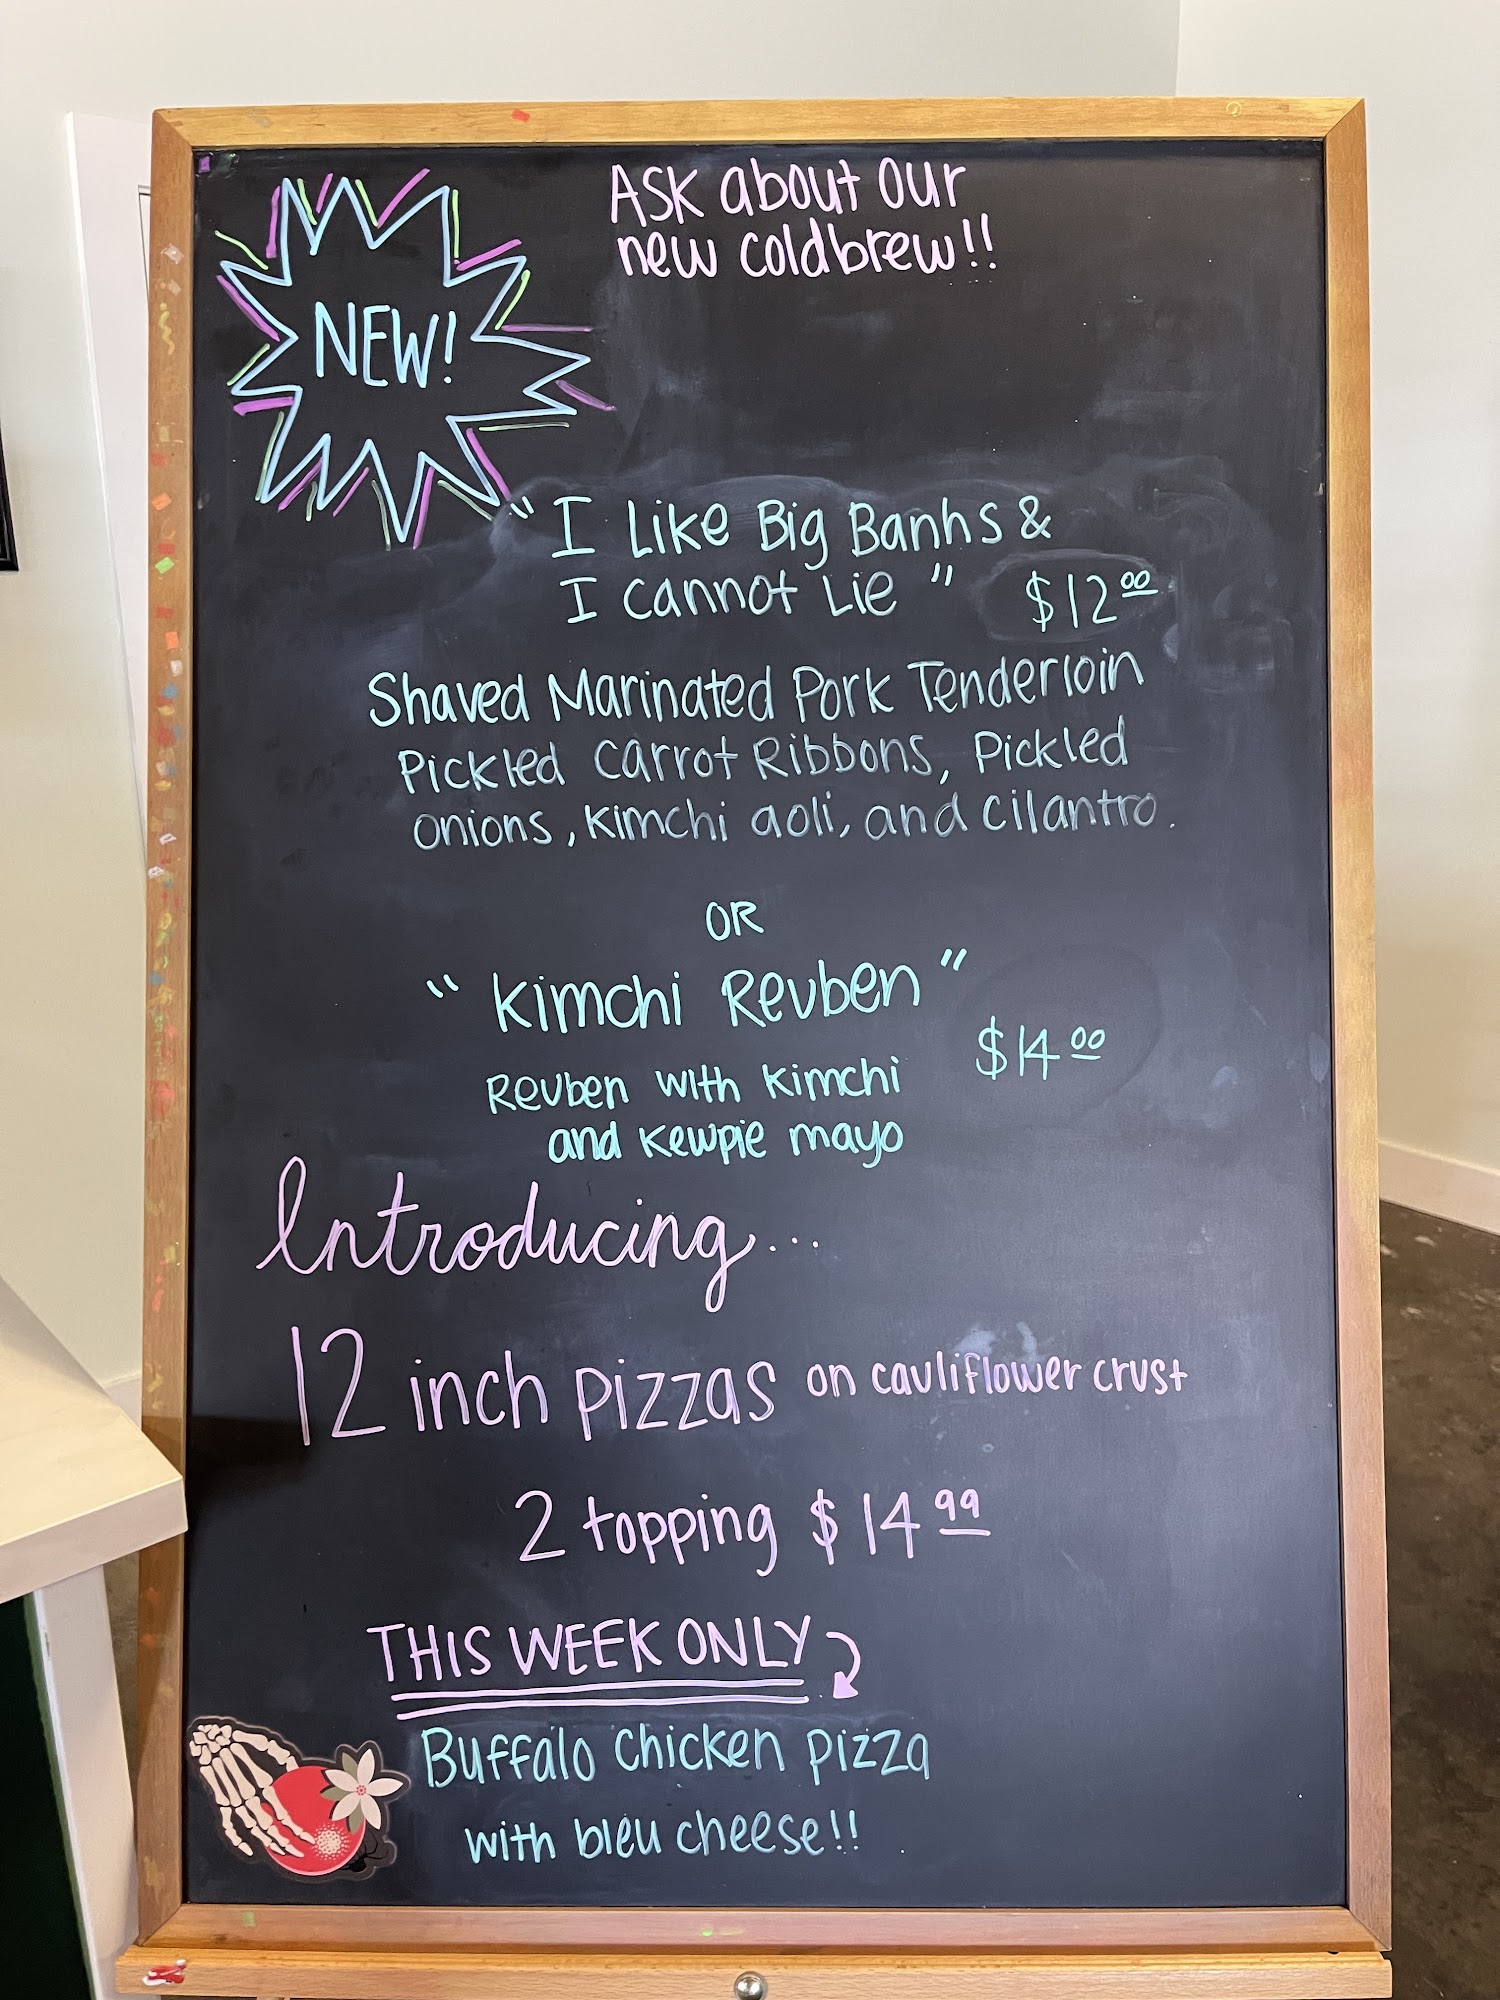 Ask about our
new coldbrew!!
NEW!
"I Like Big Banhs &
I cannot Lie" $12.00
Shaved Marinated Pork Tenderloin
Pickled Carrot Ribbons, Pickled
onions, kimchi aoli, and cilantro.
OR
"Kimchi Reuben"
$14.00
Reuben with kimchi
and kewpie mayo
Introducing...
12 inch pizzas on cauliflower crust
2 topping $14.99
THIS WEEK ONLY
Buffalo chicken pizza
with bleu cheese!!